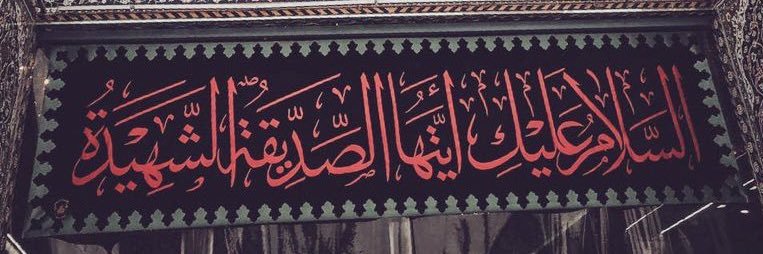 السَّلَامُ عَلَيْكِ أَيَّتُهَا الصِّدِّيقَةُ الشَّهِيدَةُ